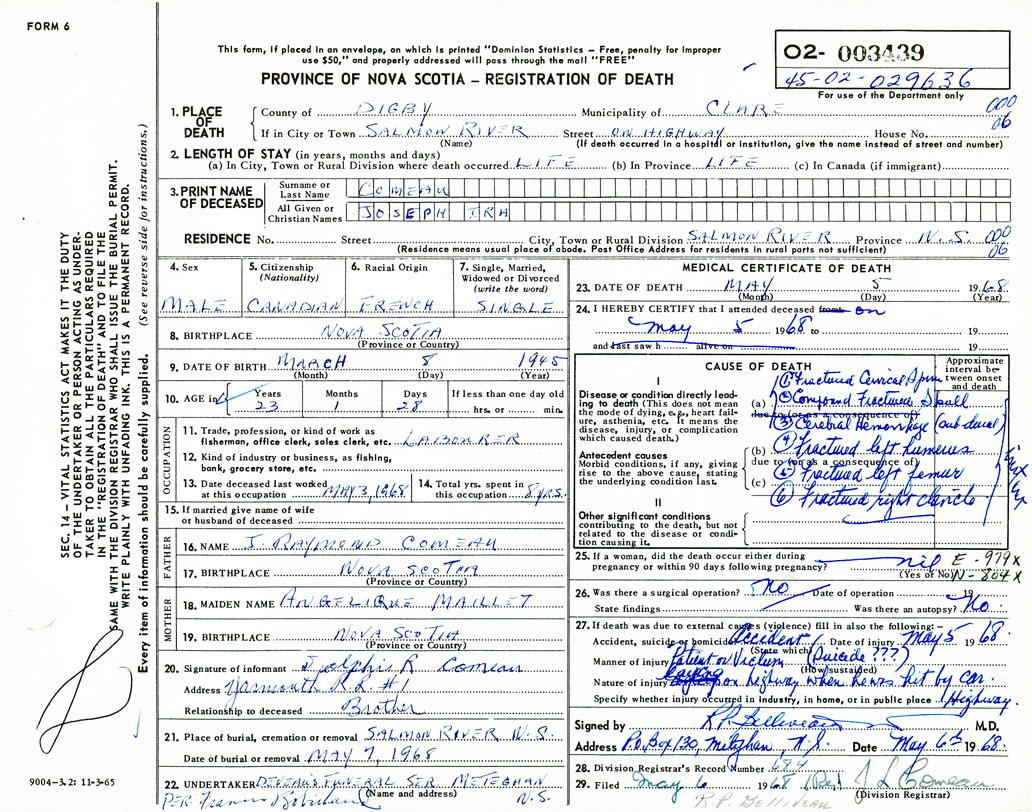 FORM 6
This form, if placed in an envelope, on which is printed "Dominion Statistics – Free, penalty for improper
use $50," and properly addressed will pass through the mail "FREE"
PROVINCE OF NOVA SCOTIA – REGISTRATION OF DEATH
O2- 003439
45-02-029636
For use of the Department only
SEC. 14 – VITAL STATISTICS ACT MAKES IT THE DUTY
OF THE UNDERTAKER OR PERSON ACTING AS UNDER-
TAKER TO OBTAIN ALL THE PARTICULARS REQUIRED
IN THE "REGISTRATION OF DEATH" AND TO FILE THE
SAME WITH THE DIVISION REGISTRAR WHO SHALL ISSUE THE BURIAL PERMIT.
WRITE PLAINLY WITH UNFADING INK. THIS IS A PERMANENT RECORD.
Every item of information should be carefully supplied. (See reverse side for instructions.)
1. PLACE OF DEATH
County of DIGBY Municipality of CLARE 000
If in City or Town SALMON RIVER Street ON HIGHWAY House No. 06
(Name) (If death occurred in a hospital or institution, give the name instead of street and number)
2. LENGTH OF STAY (in years, months and days)
(a) In City, Town or Rural Division where death occurred LIFE (b) In Province LIFE (c) In Canada (if immigrant)
3. PRINT NAME OF DECEASED
Surname or Last Name COMEAU
All Given or Christian Names JOSEPH IRA
RESIDENCE No. Street City, Town or Rural Division SALMON RIVER Province N.S. 000
(Residence means usual place of abode. Post Office Address for residents in rural parts not sufficient) 06
4. Sex 5. Citizenship (Nationality) 6. Racial Origin 7. Single, Married, Widowed or Divorced (write the word)
MALE CANADIAN FRENCH SINGLE
8. BIRTHPLACE NOVA SCOTIA
(Province or Country)
9. DATE OF BIRTH MARCH 8 1945
(Month) (Day) (Year)
10. AGE in Years Months Days If less than one day old
23 1 28 hrs. or min.
OCCUPATION
11. Trade, profession, or kind of work as
fisherman, office clerk, sales clerk, etc. LABORER
12. Kind of industry or business, as fishing,
bank, grocery store, etc.
13. Date deceased last worked at this occupation MAY 3, 1968 14. Total yrs. spent in this occupation 8 YRS.
15. If married give name of wife
or husband of deceased
FATHER
16. NAME J. RAYMOND COMEAU
17. BIRTHPLACE NOVA SCOTIA
(Province or Country)
MOTHER
18. MAIDEN NAME ANGELIQUE MAILLET
19. BIRTHPLACE NOVA SCOTIA
(Province or Country)
20. Signature of informant Dolphis R Comeau
Address Yarmouth R.R. #1
Relationship to deceased Brother
21. Place of burial, cremation or removal SALMON RIVER N.S.
Date of burial or removal MAY 7, 1968
22. UNDERTAKER DEVEAU'S FUNERAL SER METEGHAN
(Name and address) N.S.
PER Francis
9004-3.2: 11-3-65
MEDICAL CERTIFICATE OF DEATH
23. DATE OF DEATH MAY 5 1968
(Month) (Day) (Year)
24. I HEREBY CERTIFY that I attended deceased from on
May 5 1968 to 19
and last saw h alive on 19
CAUSE OF DEATH
Approximate interval between onset and death
I
Disease or condition directly leading to death (This does not mean the mode of dying, e.g., heart failure, asthenia, etc. It means the disease, injury, or complication which caused death.)
Antecedent causes
Morbid conditions, if any, giving rise to the above cause, stating the underlying condition last.
(1) Fractured Cervical Spine
(a) (2) Compound Fractured Skull
due to (or as a consequence of)
(3) Cerebral Hemorrhage (subdural)
(b) (4) Fractured left humerus
due to (or as a consequence of)
(c) (5) Fractured left femur
(6) Fractured right clavicle
II
Other significant conditions
contributing to the death, but not
related to the disease or condition causing it.
25. If a woman, did the death occur either during
pregnancy or within 90 days following pregnancy? nil E - 979x
(Yes or No) N - 804x
26. Was there a surgical operation? No Date of operation 19
State findings Was there an autopsy? No.
27. If death was due to external causes (violence) fill in also the following:–
Accident, suicide or homicide Accident Date of injury May 5 1968
(State which) (Suicide ???)
Manner of injury Patient or Victim
(How sustained)
Nature of injury laying on highway when he was hit by car.
Specify whether injury occurred in industry, in home, or in public place Highway.
Signed by R.P. Belliveau M.D.
Address P.O. Box 130, Meteghan, N.S. Date May 6th 1968.
28. Division Registrar's Record Number 684
29. Filed May 6 1968 J L Comeau
(Division Registrar)
R.P. BELLIVEAU